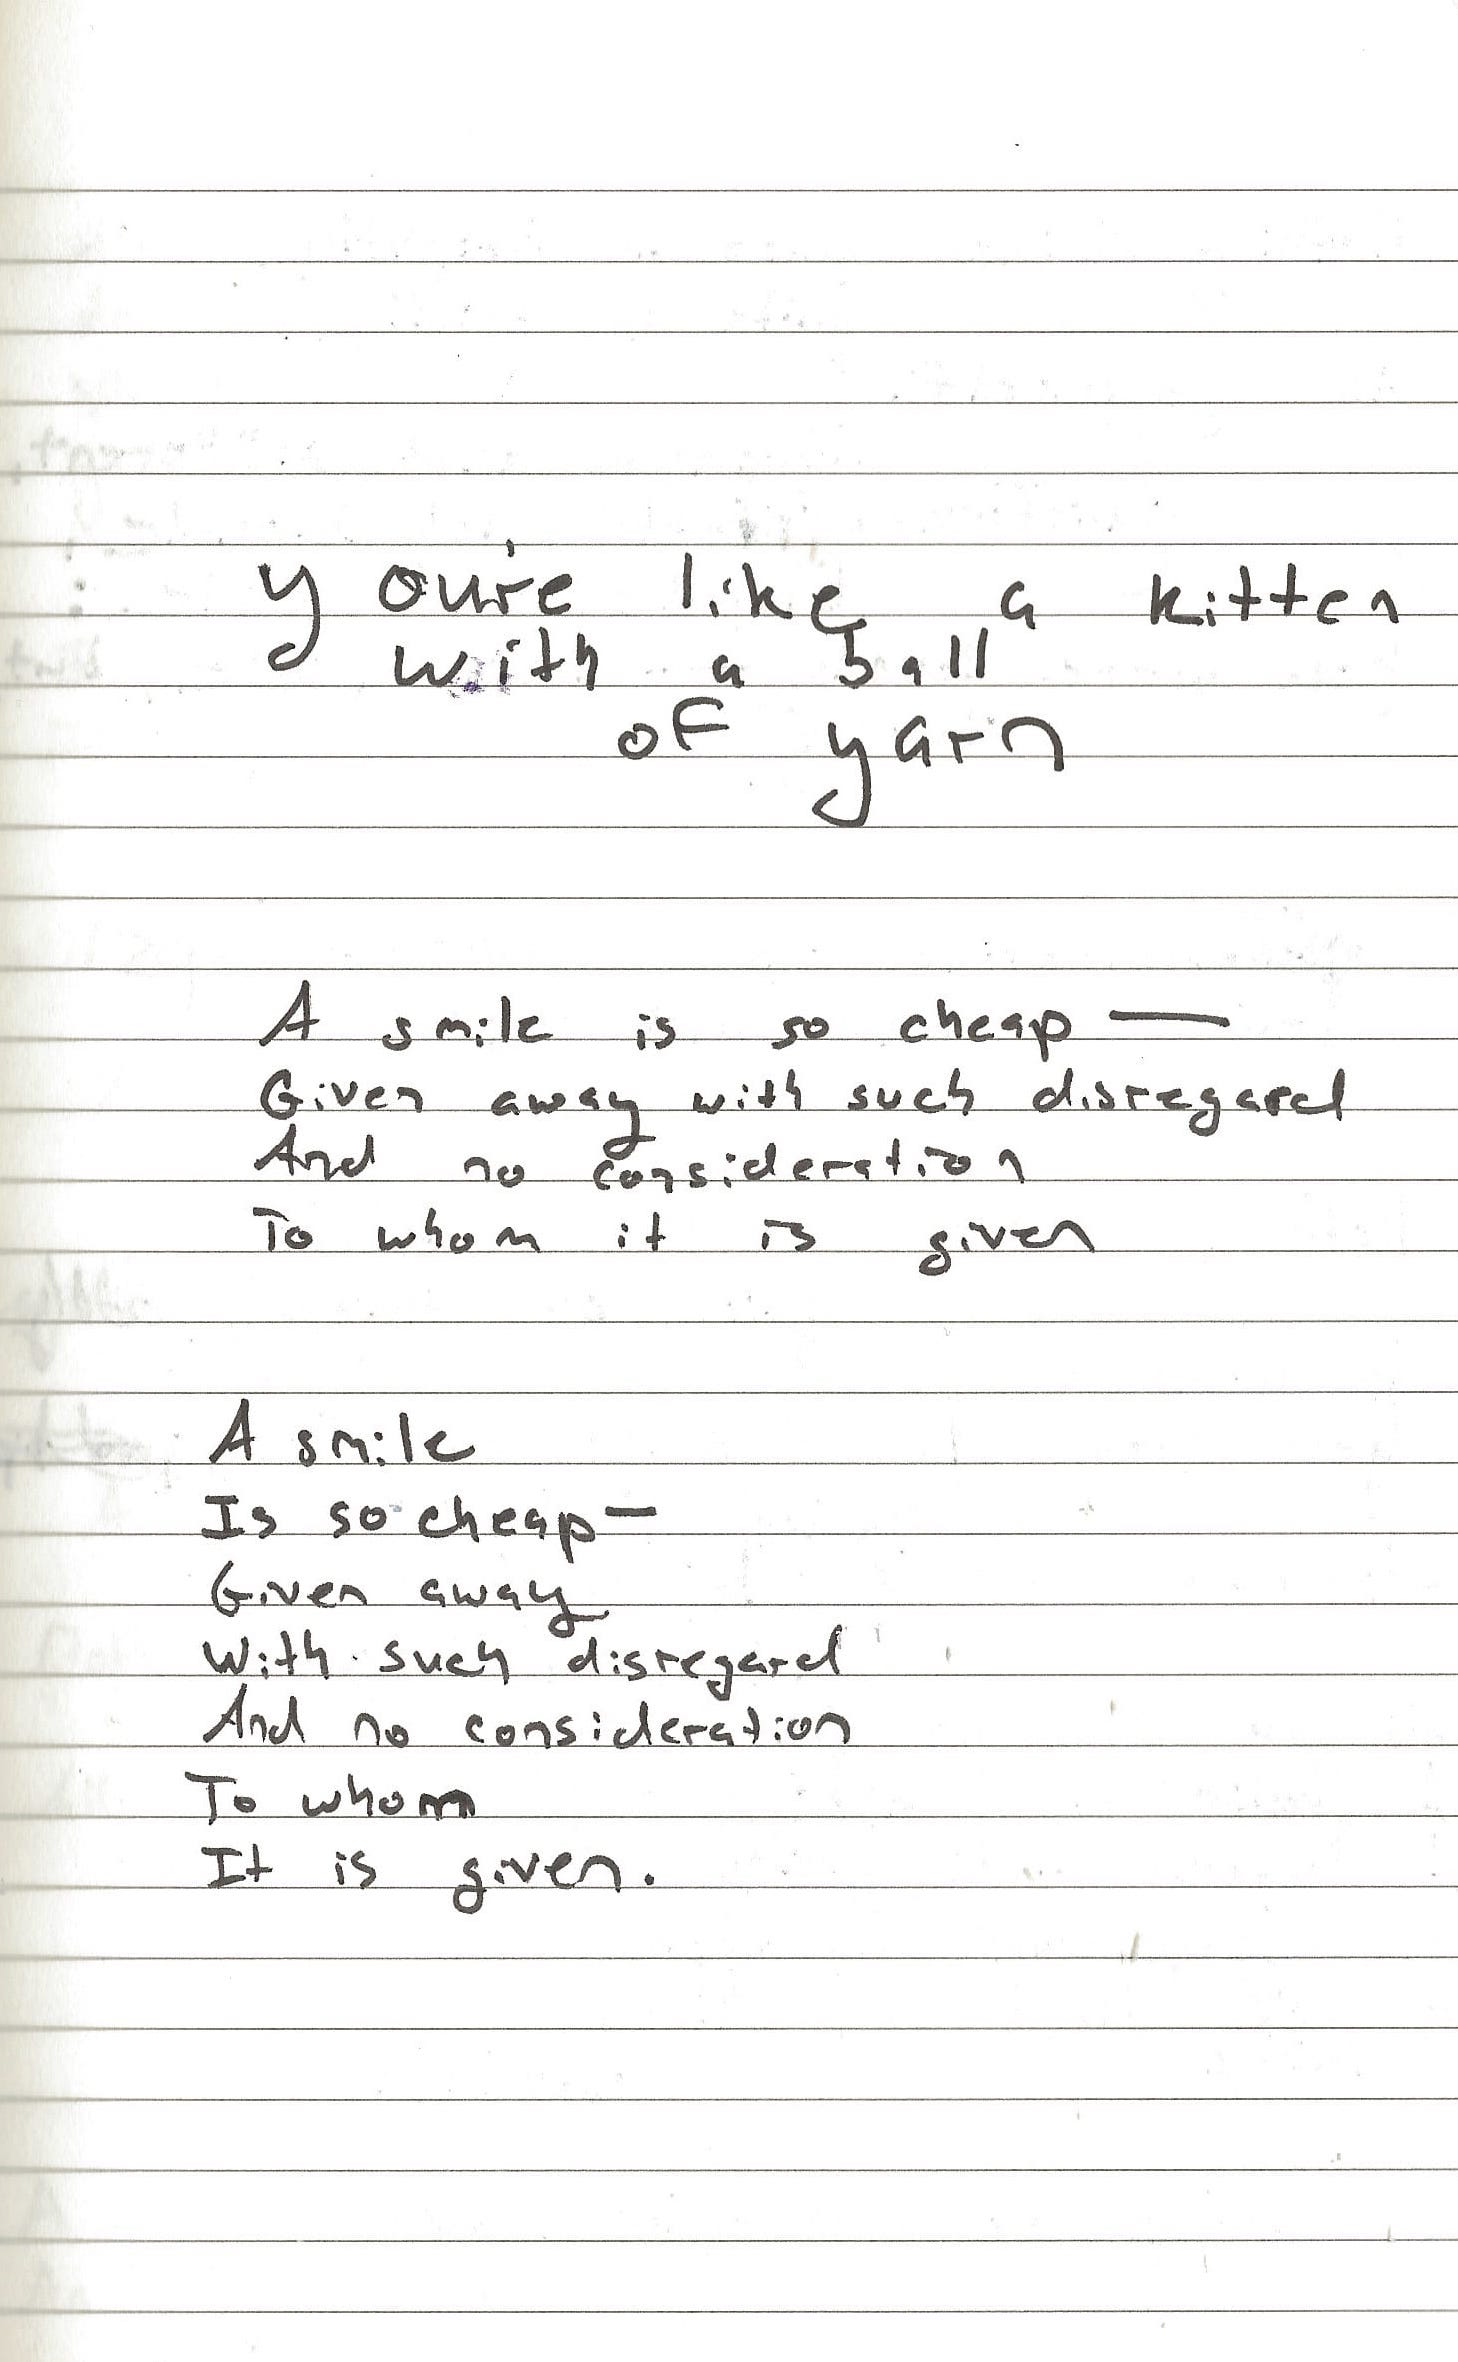 you're like a kitten
with a ball
of yarn
A smile is so cheap —
Given away with such disregard
And no consideration
To whom it is given
A smile
Is so cheap —
Given away
With such disregard
And no consideration
To whom
It is given.